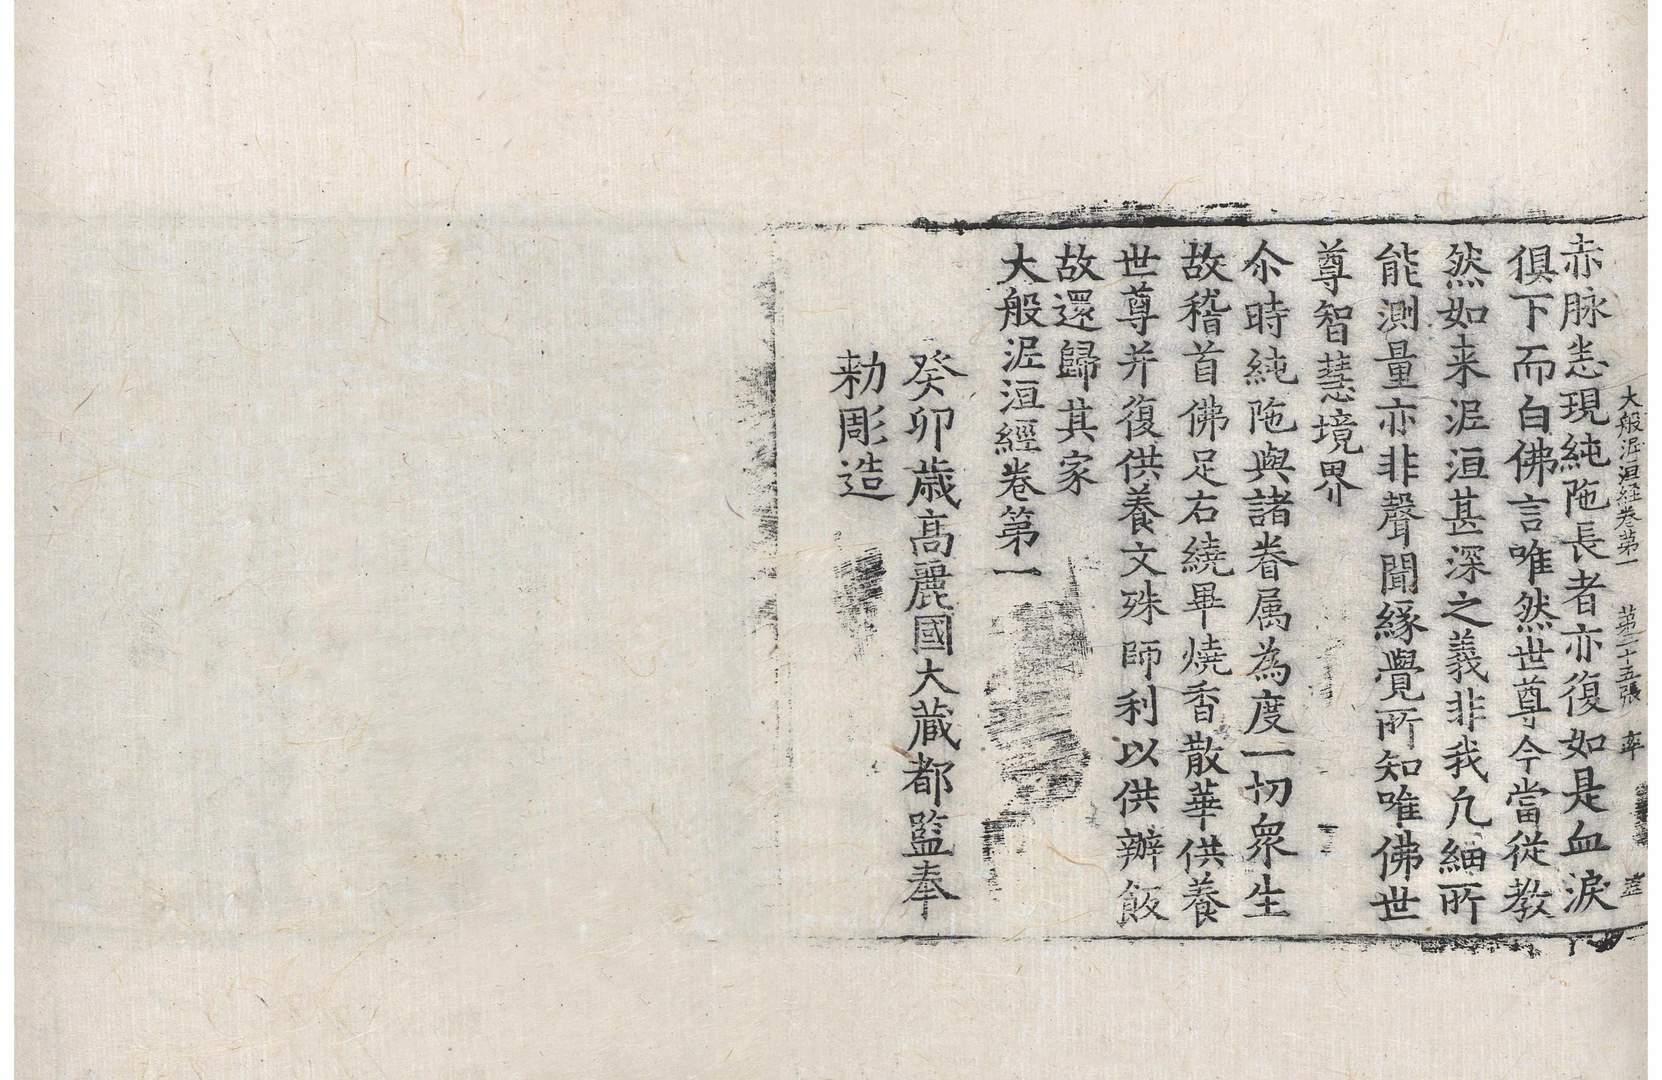 大般泥洹経卷第一 第二十五張 率
赤脉悉現純陁長者亦復如是血淚
俱下而白佛言唯然世尊今當從教
然如来泥洹甚深之義非我凢細所
能測量亦非聲聞緣覺所知唯佛世
尊智慧境界
尒時純陁與諸眷属為度一切衆生
故稽首佛足右繞畢燒香散華供養
世尊并復供養文殊師利以供辦飯
故還歸其家
大般泥洹經卷第一
癸卯歳髙麗國大藏都監奉
勑彫造